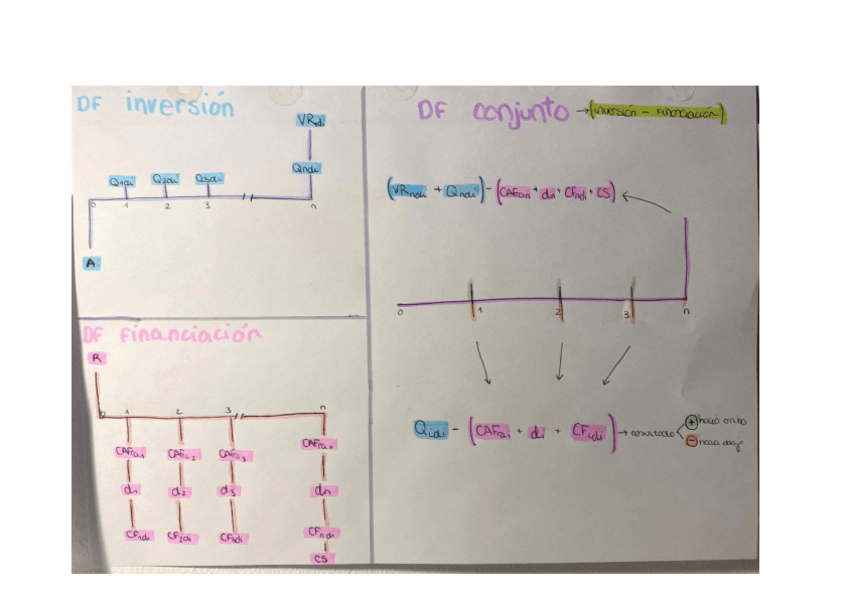 DF inversión
VRndi
Qndi
Q1di Q2di Q3di
0 1 2 3 n
A
DF Financiación
R
0 1 2 3 n
CAFra1 CAFra2 CAFra3 CAFran
d1 d2 d3 dn
CF1di CF2di CF3di CFndi
CS
DF conjunto → (inversión - Financiación)
(VRndi + Qndi) - (CAFran + dn + CFndi + CS)
0 1 2 3 n
Qidi - (CAFrai + di + CFidi) → resultado
+ hacia arriba
- hacia abajo